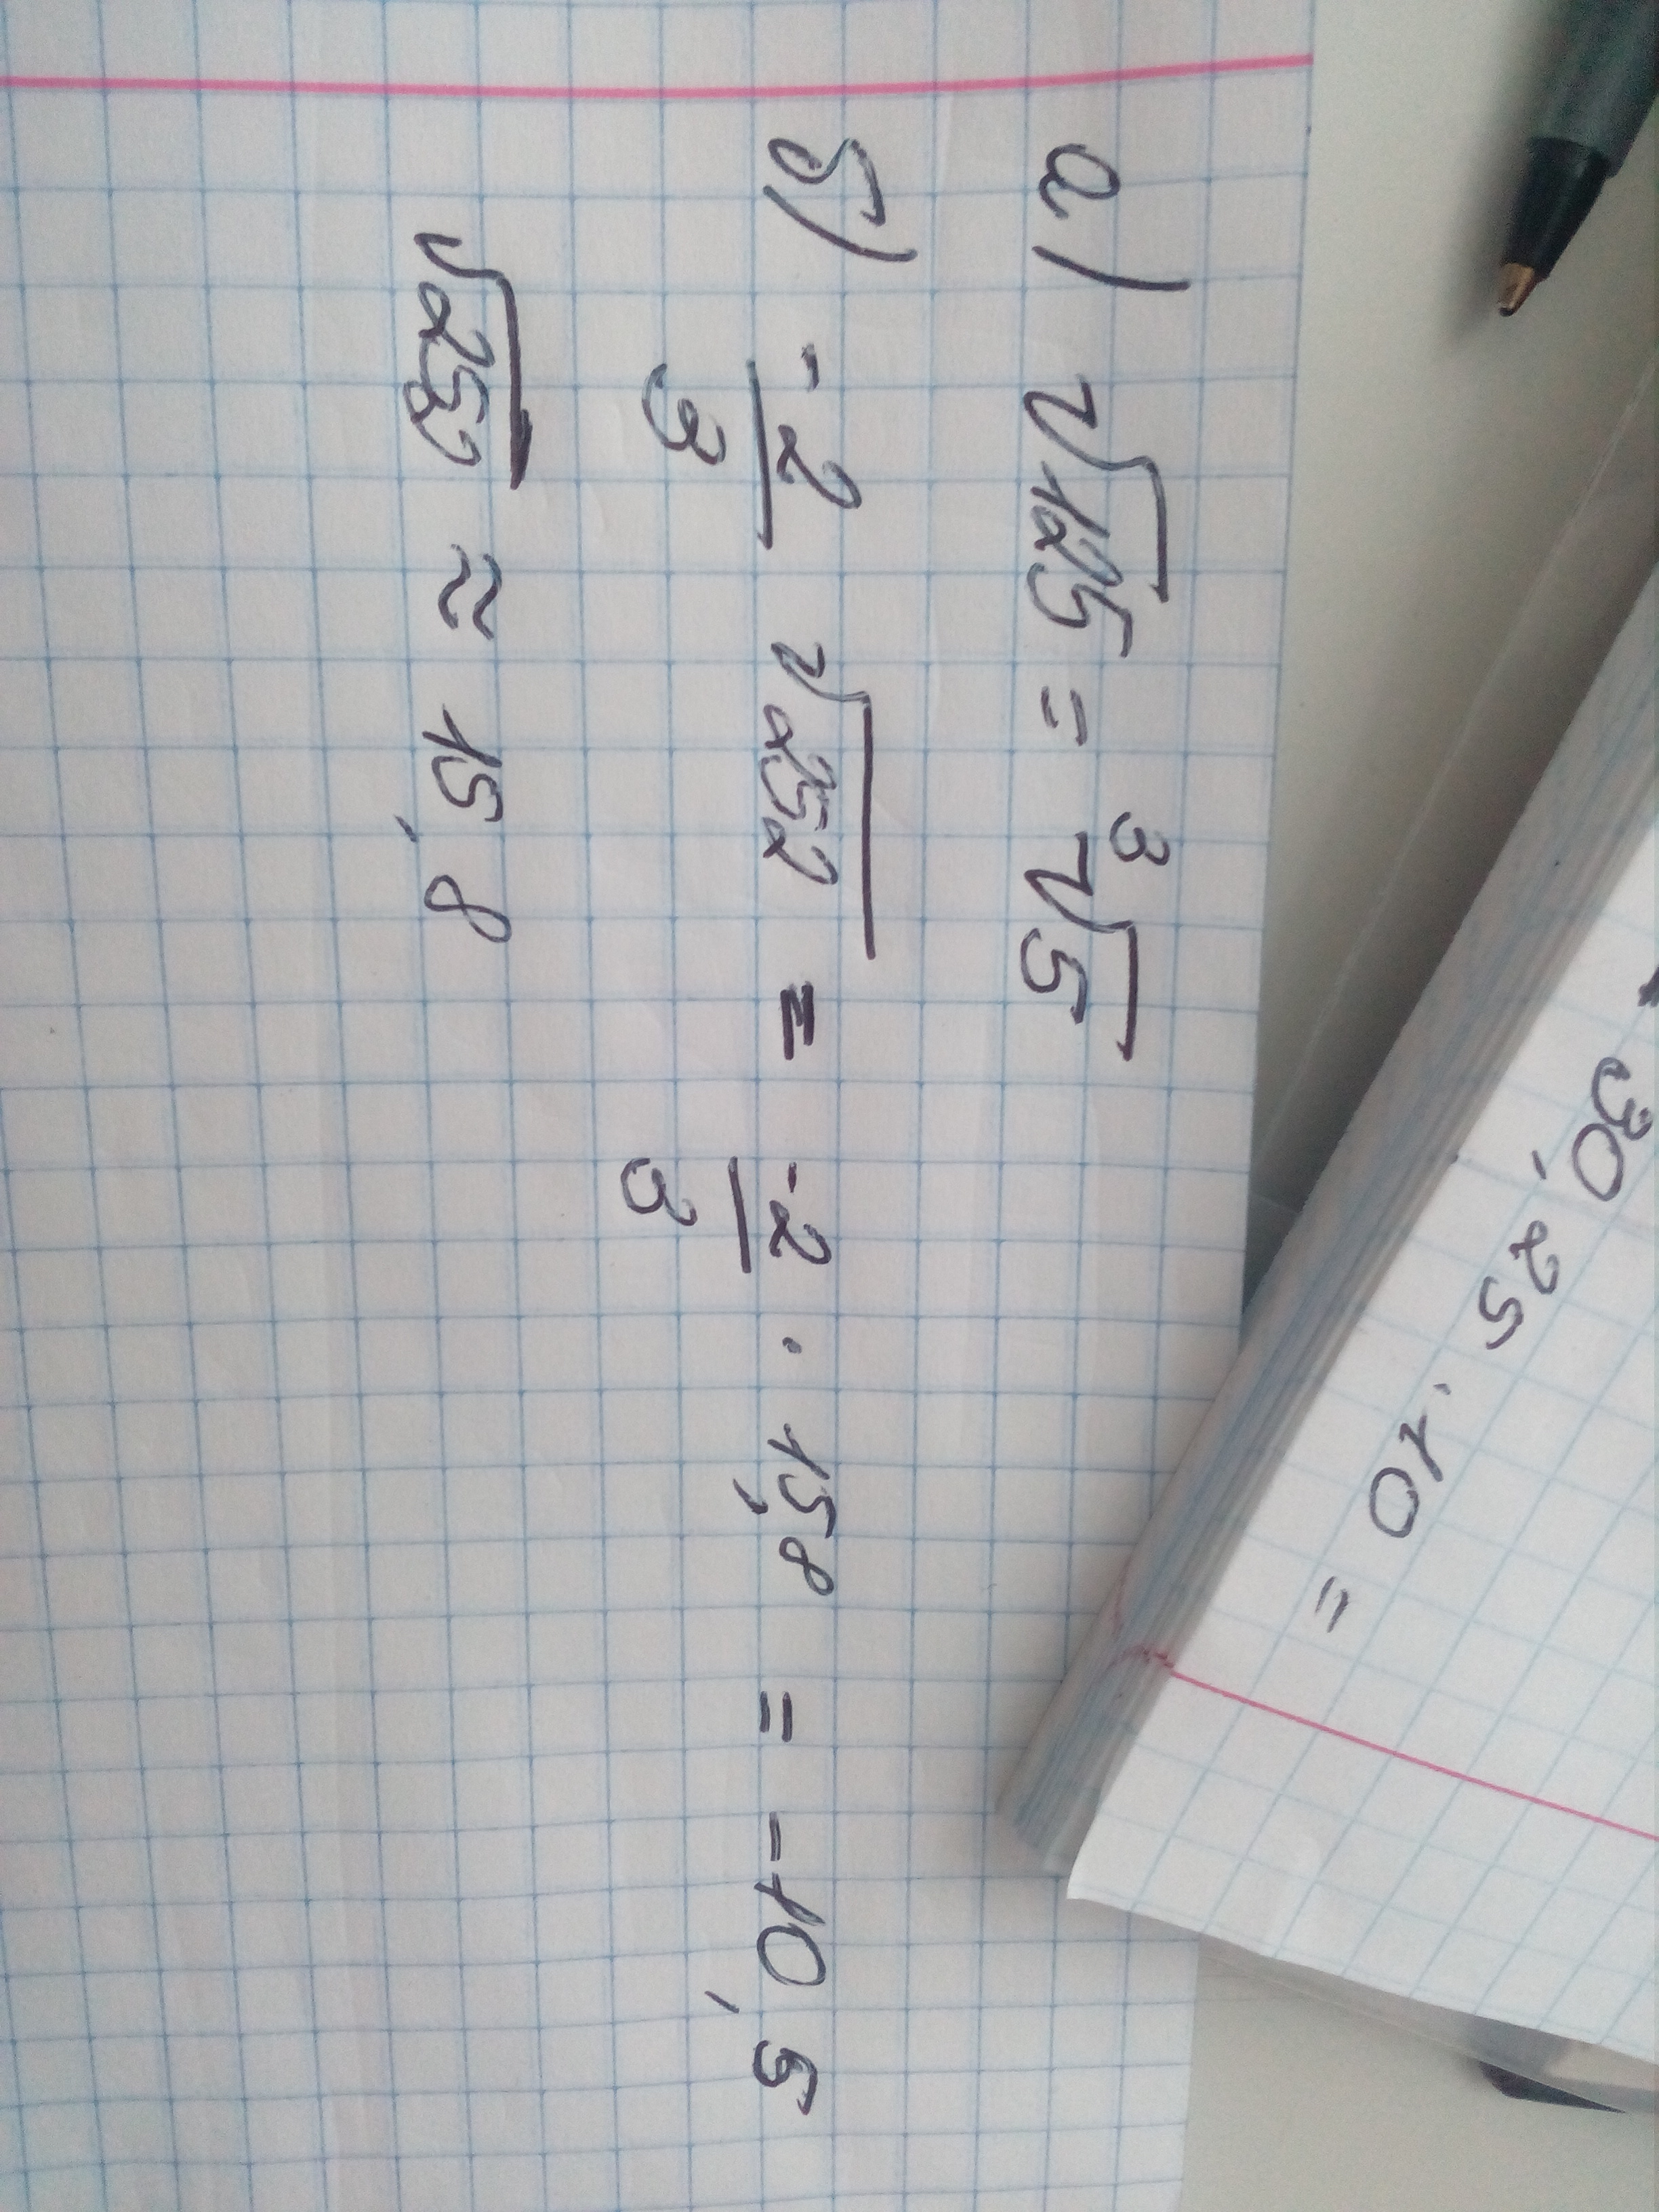 а) √125 = ³√5
б) -2/3 √252 = -2/3 · 15,8 = -10,5
√252 ≈ 15,8
30,25 · 10 =